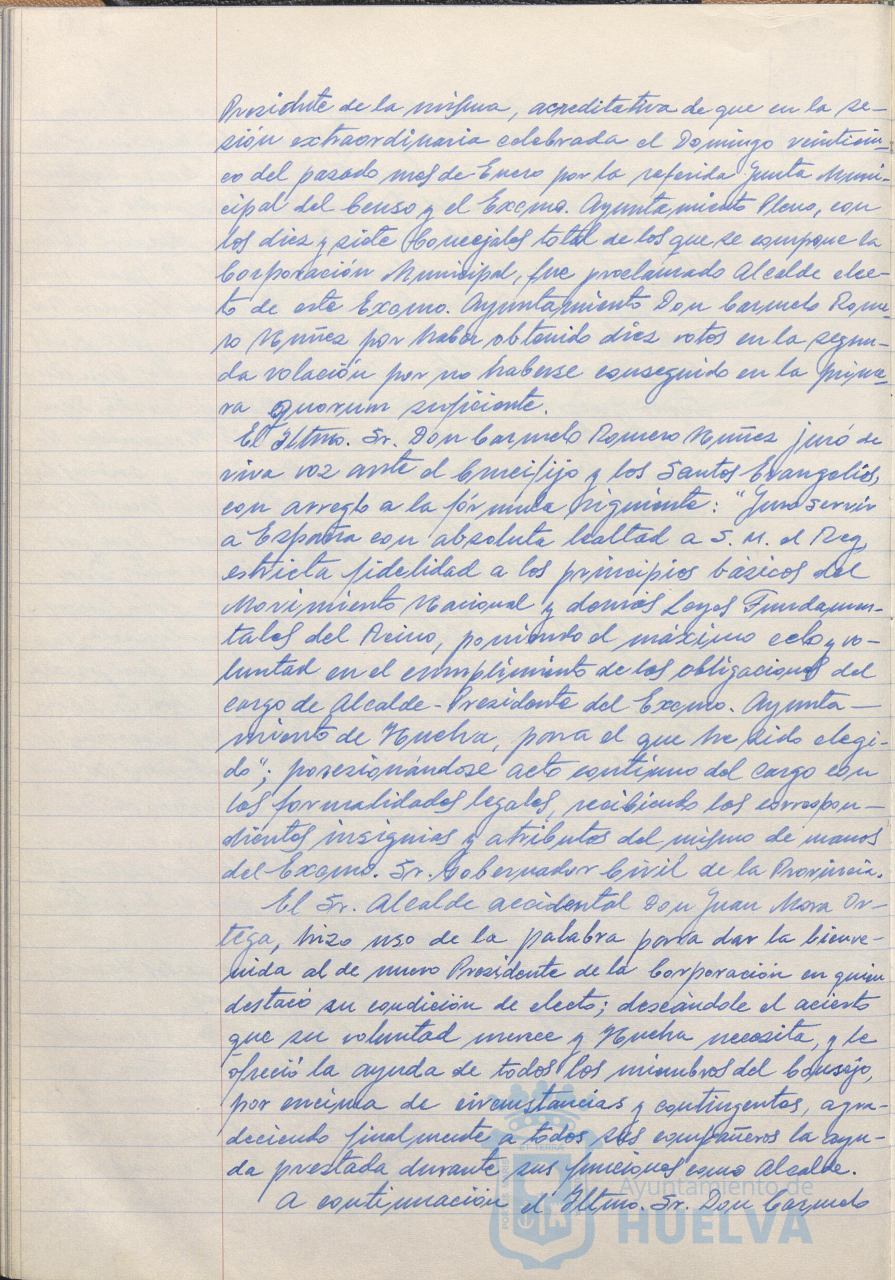 Presidente de la misma, acreditativa de que en la se-
sión extraordinaria celebrada el Domingo veinticin-
co del pasado mes de Enero por la referida Junta Muni-
cipal del Censo y el Excmo. Ayuntamiento Pleno, con
los diez y siete Concejales total de los que se compone la
Corporación Municipal, fue proclamado Alcalde elec-
to de este Excmo. Ayuntamiento Don Carmelo Rome-
ro Núñez por haber obtenido diez votos en la segun-
da votación por no haberse conseguido en la prime-
ra quorum suficiente.
El Iltmo. Sr. Don Carmelo Romero Núñez juró de
viva voz ante el Crucifijo y los Santos Evangelios,
con arreglo a la fórmula siguiente: "Juro servir
a España con absoluta lealtad a S. M. el Rey,
estricta fidelidad a los principios básicos del
Movimiento Nacional y demás Leyes Fundamen-
tales del Reino, poniendo el máximo celo y vo-
luntad en el cumplimiento de las obligaciones del
cargo de Alcalde-Presidente del Excmo. Ayunta-
miento de Huelva, para el que he sido elegi-
do"; posesionándose acto continuo del cargo con
las formalidades legales, recibiendo los correspon-
dientes insignias y atributos del mismo de manos
del Excmo. Sr. Gobernador Civil de la Provincia.
El Sr. Alcalde accidental Don Juan Mora Or-
tega, hizo uso de la palabra para dar la bienve-
nida al de nuevo Presidente de la Corporación en quien
destacó su condición de electo; deseándole el acierto
que su voluntad merece y Huelva necesita, y le
ofreció la ayuda de todos los miembros del Consejo,
por encima de circunstancias y contingentes, agra-
deciendo finalmente a todos sus compañeros la ayu-
da prestada durante sus funciones como Alcalde.
A continuación el Iltmo. Sr. Don Carmelo
Ayuntamiento de
HUELVA